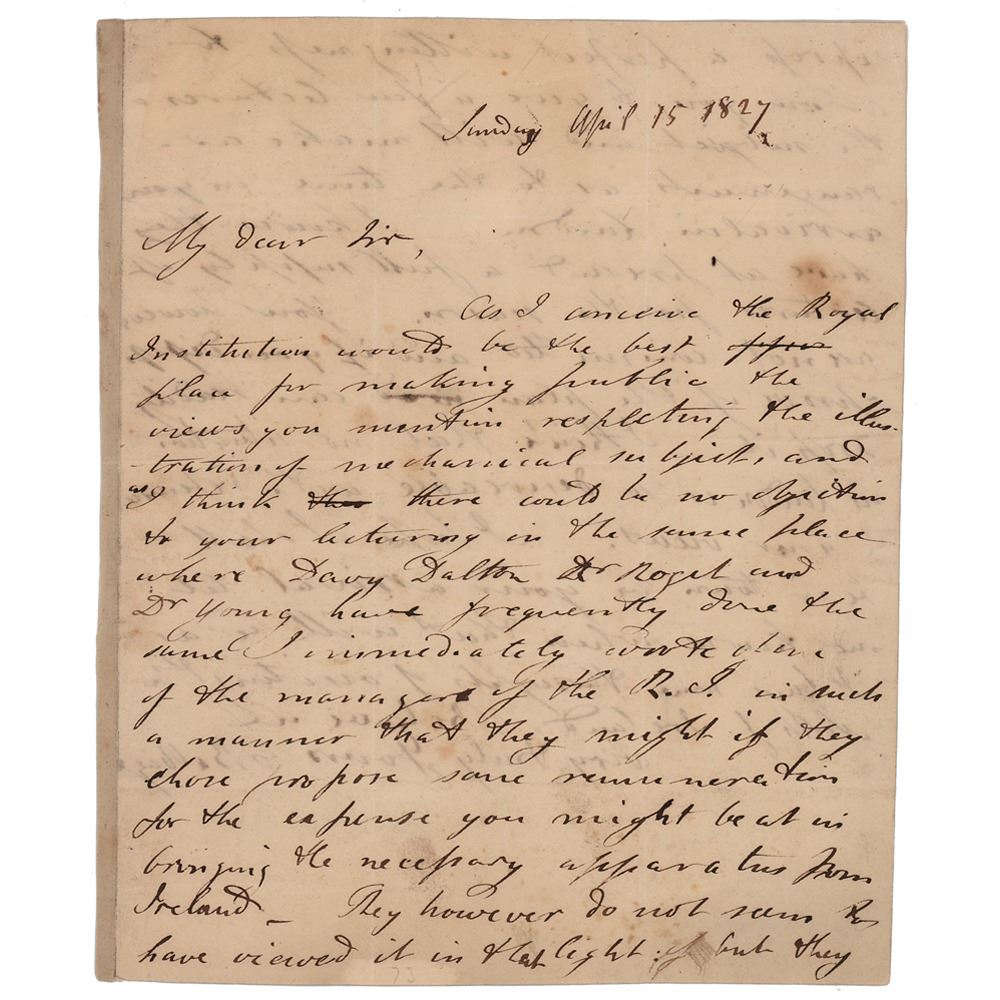 Sunday April 15 1827
My dear Sir,
As I conceive the Royal
Institution would be the best
place for making public the
views you mention respecting the illus-
-tration of mechanical subjects, and
as I think there could be no objection
to your lecturing in the same place
where Davy Dalton Dr Roget and
Dr Young have frequently done the
same I immediately wrote
of the managers of the R.I. in such
a manner that they might if they
chose propose some remuneration
for the expense you might be at in
bringing the necessary apparatus from
Ireland _ They however do not seem to
have viewed it in that light but they